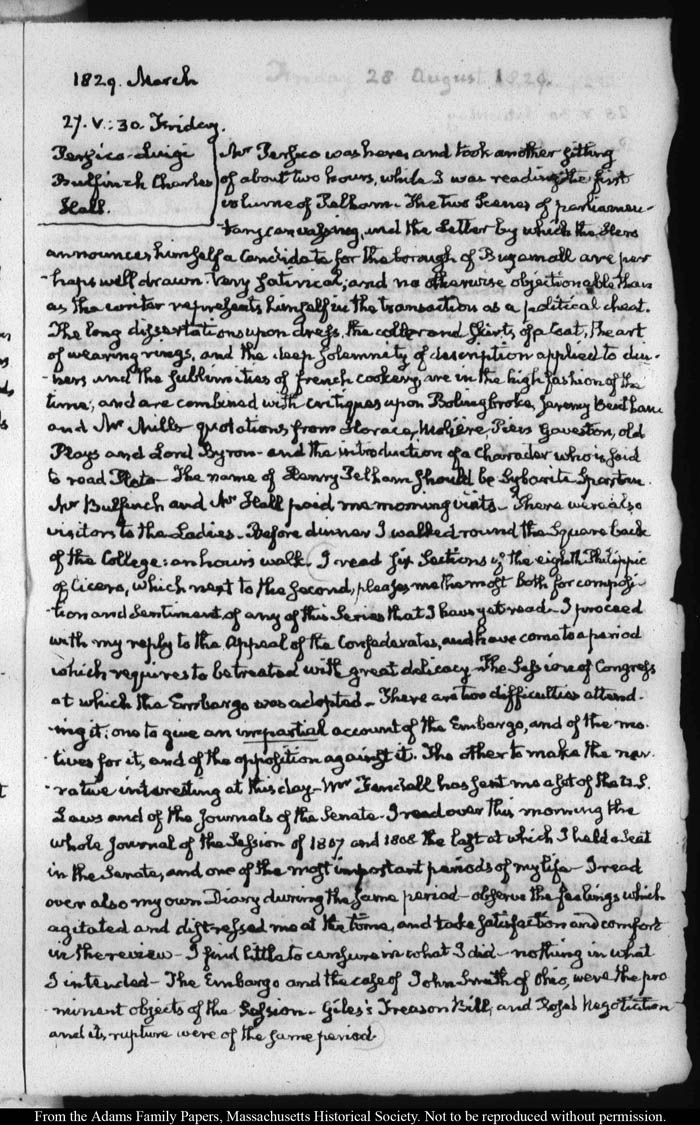 1829. March
27. V:30. Friday.
Persico-Luigi
Bulfinch Charles
Hall.
Mr Persico was here, and took another sitting
of about two hours, while I was reading the first
volume of Pelham. The two Scenes of parliamen-
tary canvassing, and the Letter by which the Hero
announces himself a Candidate for the borough of Buyemall are per
-haps well drawn. Very satirical, and no otherwise objectionable than
as the writer represents himself in the transaction as a political cheat.
The long dissertations upon dress, the collar and skirts, of a Coat, the art
of wearing rings, and the deep solemnity of description applied to din-
-ners and the sublimities of french cookery, are in the high fashion of the
time; and are combined with critiques upon Bolingbroke, Jeremy Bentham
and Mr Mill quotations from Horace, Moliere, Piers Gaveston, old
Plays and Lord Byron- and the introduction of a Character who is said
to read Plato- The name of Henry Pelham should be Sybarite Spartan.
Mr Bulfinch and Mr Hall paid me morning visits- There were also
visitors to the Ladies- Before dinner I walked round the Square back
of the College: an hour's walk. I read six Sections of the eighth Philippic
of Cicero, which next to the second, pleases me the most both for composi-
-tion and Sentiment, of any of this Series that I have yet read- I proceed
with my reply to the Appeal of the Confederates, and have come to a period
which requires to be treated with great delicacy- The Session of Congress
at which the Embargo was adopted- There are two difficulties attend-
-ing it: one to give an impartial account of the Embargo, and of the mo-
tives for it, and of the opposition against it. The other to make the nar-
-rative interesting at this day- Mr Fendall has sent me a set of the U.S.
Laws and of the Journals of the Senate- I read over this morning the
whole Journal of the Session of 1807 and 1808 the last at which I held a Seat
in the Senate, and one of the most important periods of my life- I read
over also my own Diary during the same period- observe the feelings which
agitated and distressed me at the time, and take satisfaction and comfort
in the review- I find little to censure in what I did- nothing in what
I intended- The Embargo and the case of John Smith of Ohio, were the pro
-minent objects of the Session- Giles's Treason Bill, and Rose's Negotiation
and its rupture were of the same period.
From the Adams Family Papers, Massachusetts Historical Society. Not to be reproduced without permission.